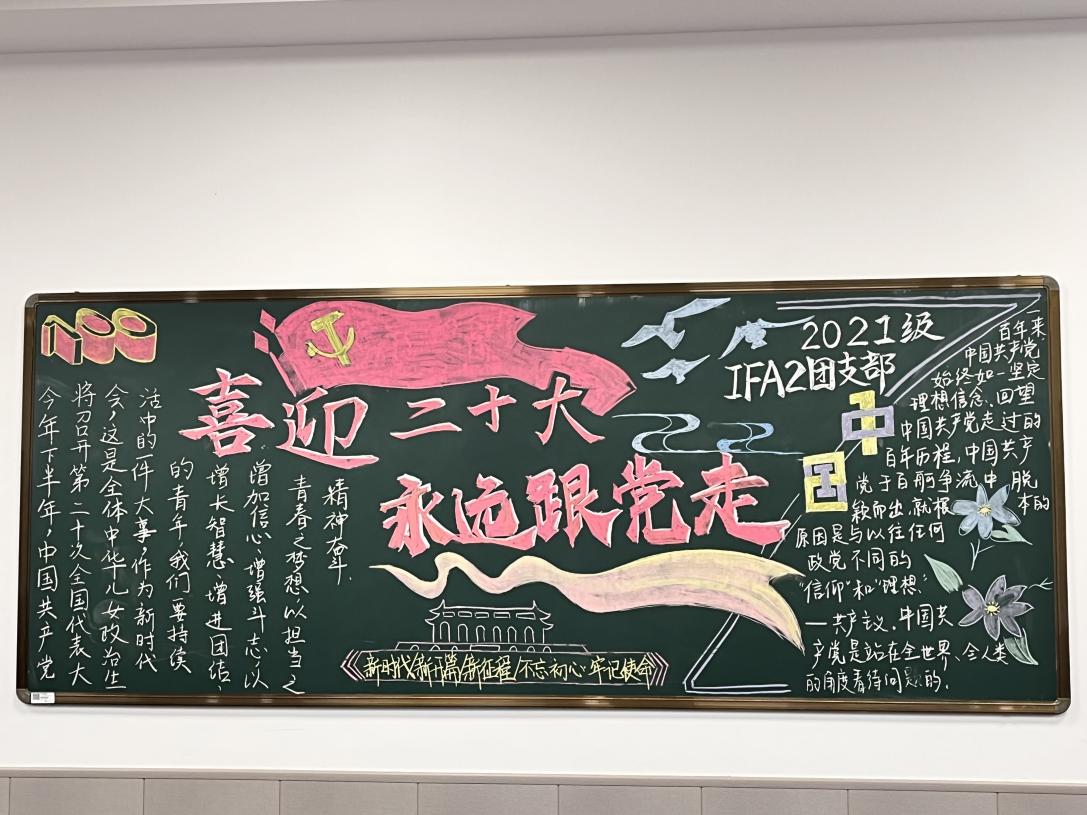 100
喜迎二十大
永远跟党走
2021级
IFA2团支部
今年下半年,中国共产党
将召开第二十次全国代表大
会,这是全体中华儿女政治生
活中的一件大事,作为新时代
的青年我们要持续
增长智慧、增进团结、
增加信心、增强斗志,以
青春之梦想以担当之
精神奋斗.
新时代/新开篇/新征程/不忘初心·牢记使命
中国
一
百年来
中国共产党
始终如一坚定
理想信念、回望
中国共产党走过的
百年历程,中国共产
党于百舸争流中 脱
颖而出,就根 本的
原因是与以往任何
政党不同的
"信仰"和"理想"
—共产议.中国共
产党是站在全世界、全人类
的角度看待问题的.